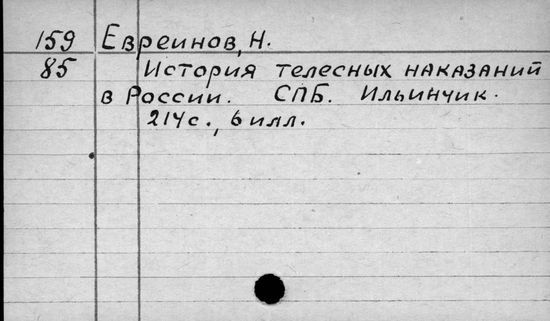 159 Евреинов, Н.
85 История телесных наказаний
в России. СПБ. Ильинчик.
214с., 6 илл.